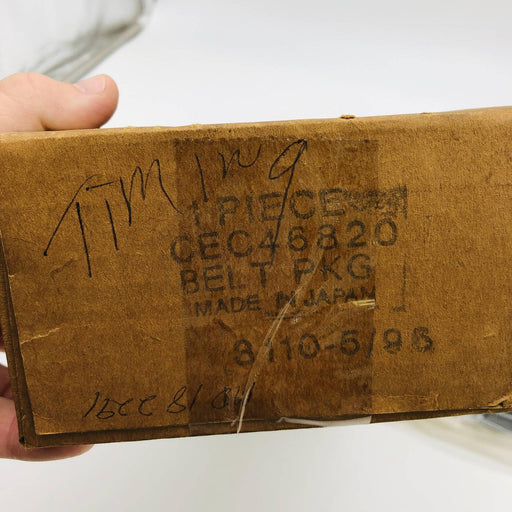 Timing
1 PIECE
CEC46820
BELT PKG
MADE IN JAPAN
8110-5/96